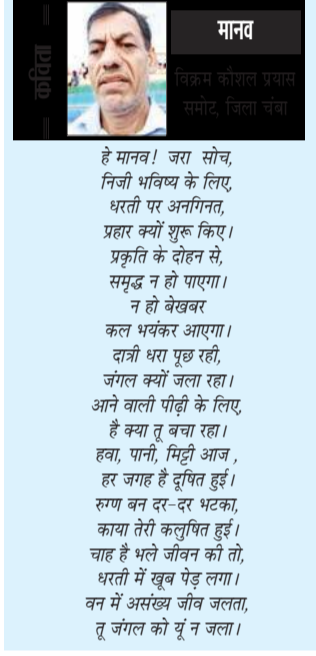 कविता
मानव
विक्रम कौशल प्रयास
समोट, जिला चंबा
हे मानव! जरा सोच,
निजी भविष्य के लिए,
धरती पर अनगिनत,
प्रहार क्यों शुरू किए।
प्रकृति के दोहन से,
समृद्ध न हो पाएगा।
न हो बेखबर
कल भयंकर आएगा।
दात्री धरा पूछ रही,
जंगल क्यों जला रहा।
आने वाली पीढ़ी के लिए,
है क्या तू बचा रहा।
हवा, पानी, मिट्टी आज ,
हर जगह है दूषित हुई।
रुग्ण बन दर-दर भटका,
काया तेरी कलुषित हुई।
चाह है भले जीवन की तो,
धरती में खूब पेड़ लगा।
वन में असंख्य जीव जलता,
तू जंगल को यूं न जला।